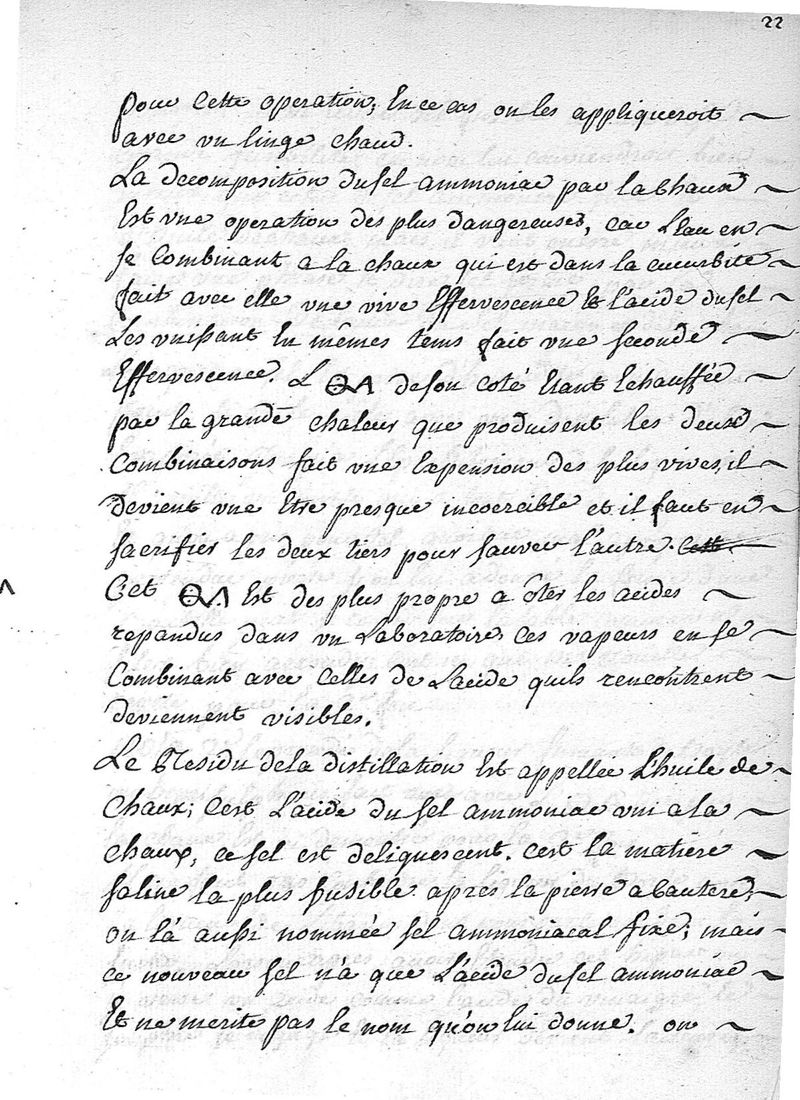 22
pour Cette operation; En ce cas on les appliqueroit
avec un linge chaud.
La decomposition du sel ammoniac par la Chaux
Est vne operation des plus dangereuses, car L'eau en
se Combinant a la chaux qui est dans la cucurbite
fait avec elle vne vive Effervescence Et l'acide du sel
Les vnissant En mêmes tems fait vne seconde
Effervescence. L de son coté Etant Echauffée
par la grande chaleur que produisent les deux
Combinaisons fait vne Expension des plus vives, il
devient vne Etre presque incoercible et il faut en
sacrifier les deux tiers pour sauver l'autre. Cett
Cet Est des plus propre a ôter les acides
repandus dans vn Laboratoire, Ces vapeurs en se
Combinant avec Celles de L'acide quels rencontrent
deviennent visibles.
Le Residu de la distillation Est appellée L'huile de
Chaux; C'est L'acide du sel ammoniac vni a la
Chaux, ce sel est deliquescent. C'est la matiere
saline la plus fusible apres la pierre a Cautere,
on l'à aussi nommée sel ammoniacal fixe; mais
ce nouveau sel n'a que L'acide du sel ammoniac
Et ne merite pas le nom qu'on lui donne. on